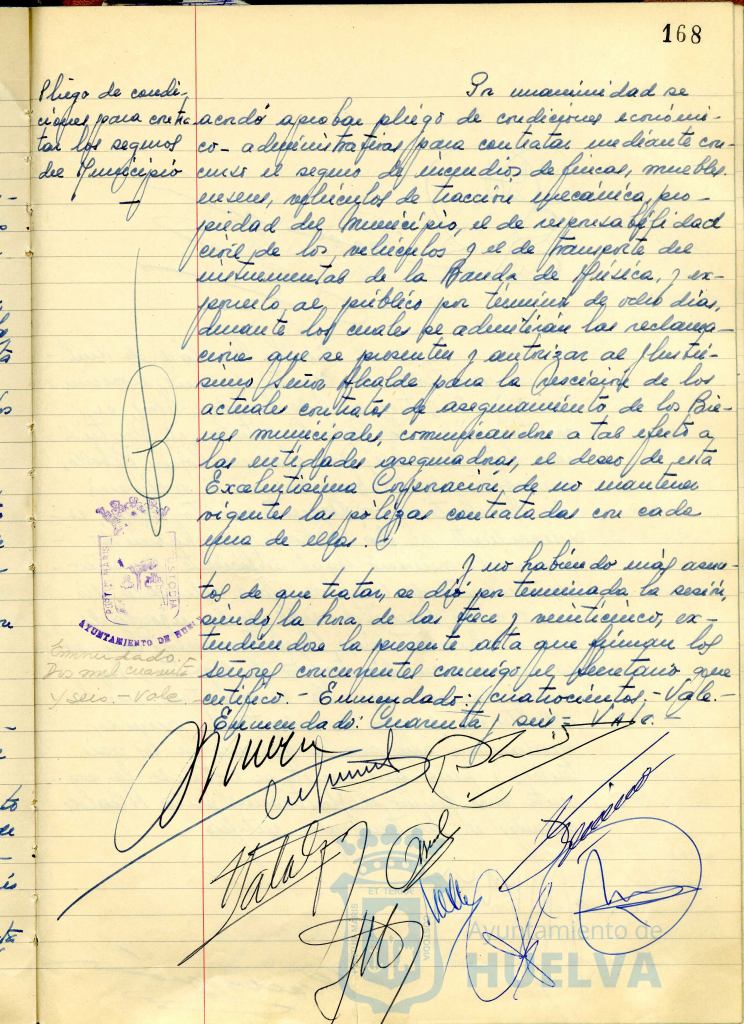 168
Pliego de condi-
ciones para contra
tar los seguros
del Municipio
Por unanimidad se
acordó aprobar pliego de condiciones económi-
co-administrativas para contratar mediante con-
curso el seguro de incendios de fincas, muebles,
enseres, vehículos de tracción mecánica, pro-
piedad del Municipio, el de responsabilidad
civil de los vehículos y el de transporte del
instrumental de la Banda de Música, y ex-
ponerlo al público por término de ocho días,
durante los cuales se admitirán las reclama-
ciones que se presenten y autorizar al Ilustrí-
simo Señor Alcalde para la rescisión de los
actuales contratos de aseguramiento de los Bie-
nes municipales, comunicándose a tal efecto a
las entidades aseguradoras, el deseo de esta
Excelentísima Corporación, de no mantener
vigentes las pólizas contratadas con cada
una de ellas.
Y no habiendo más asun-
tos de que tratar, se dió por terminada la sesión,
siendo la hora de las trece y veinticinco, ex-
tendiéndose la presente acta que firman los
señores concurrentes conmigo el secretario que
certifico. - Enmendado: cuatrocientos. - Vale. -
Enmendado: Cuarenta y seis = Vale. -
PORT MARIS
ET TERRE
CUSTODIA
AYUNTAMIENTO DE HUELVA
Enmendado. -
Dos mil cuarenta
y seis. - Vale.
Ayuntamiento de
HUELVA